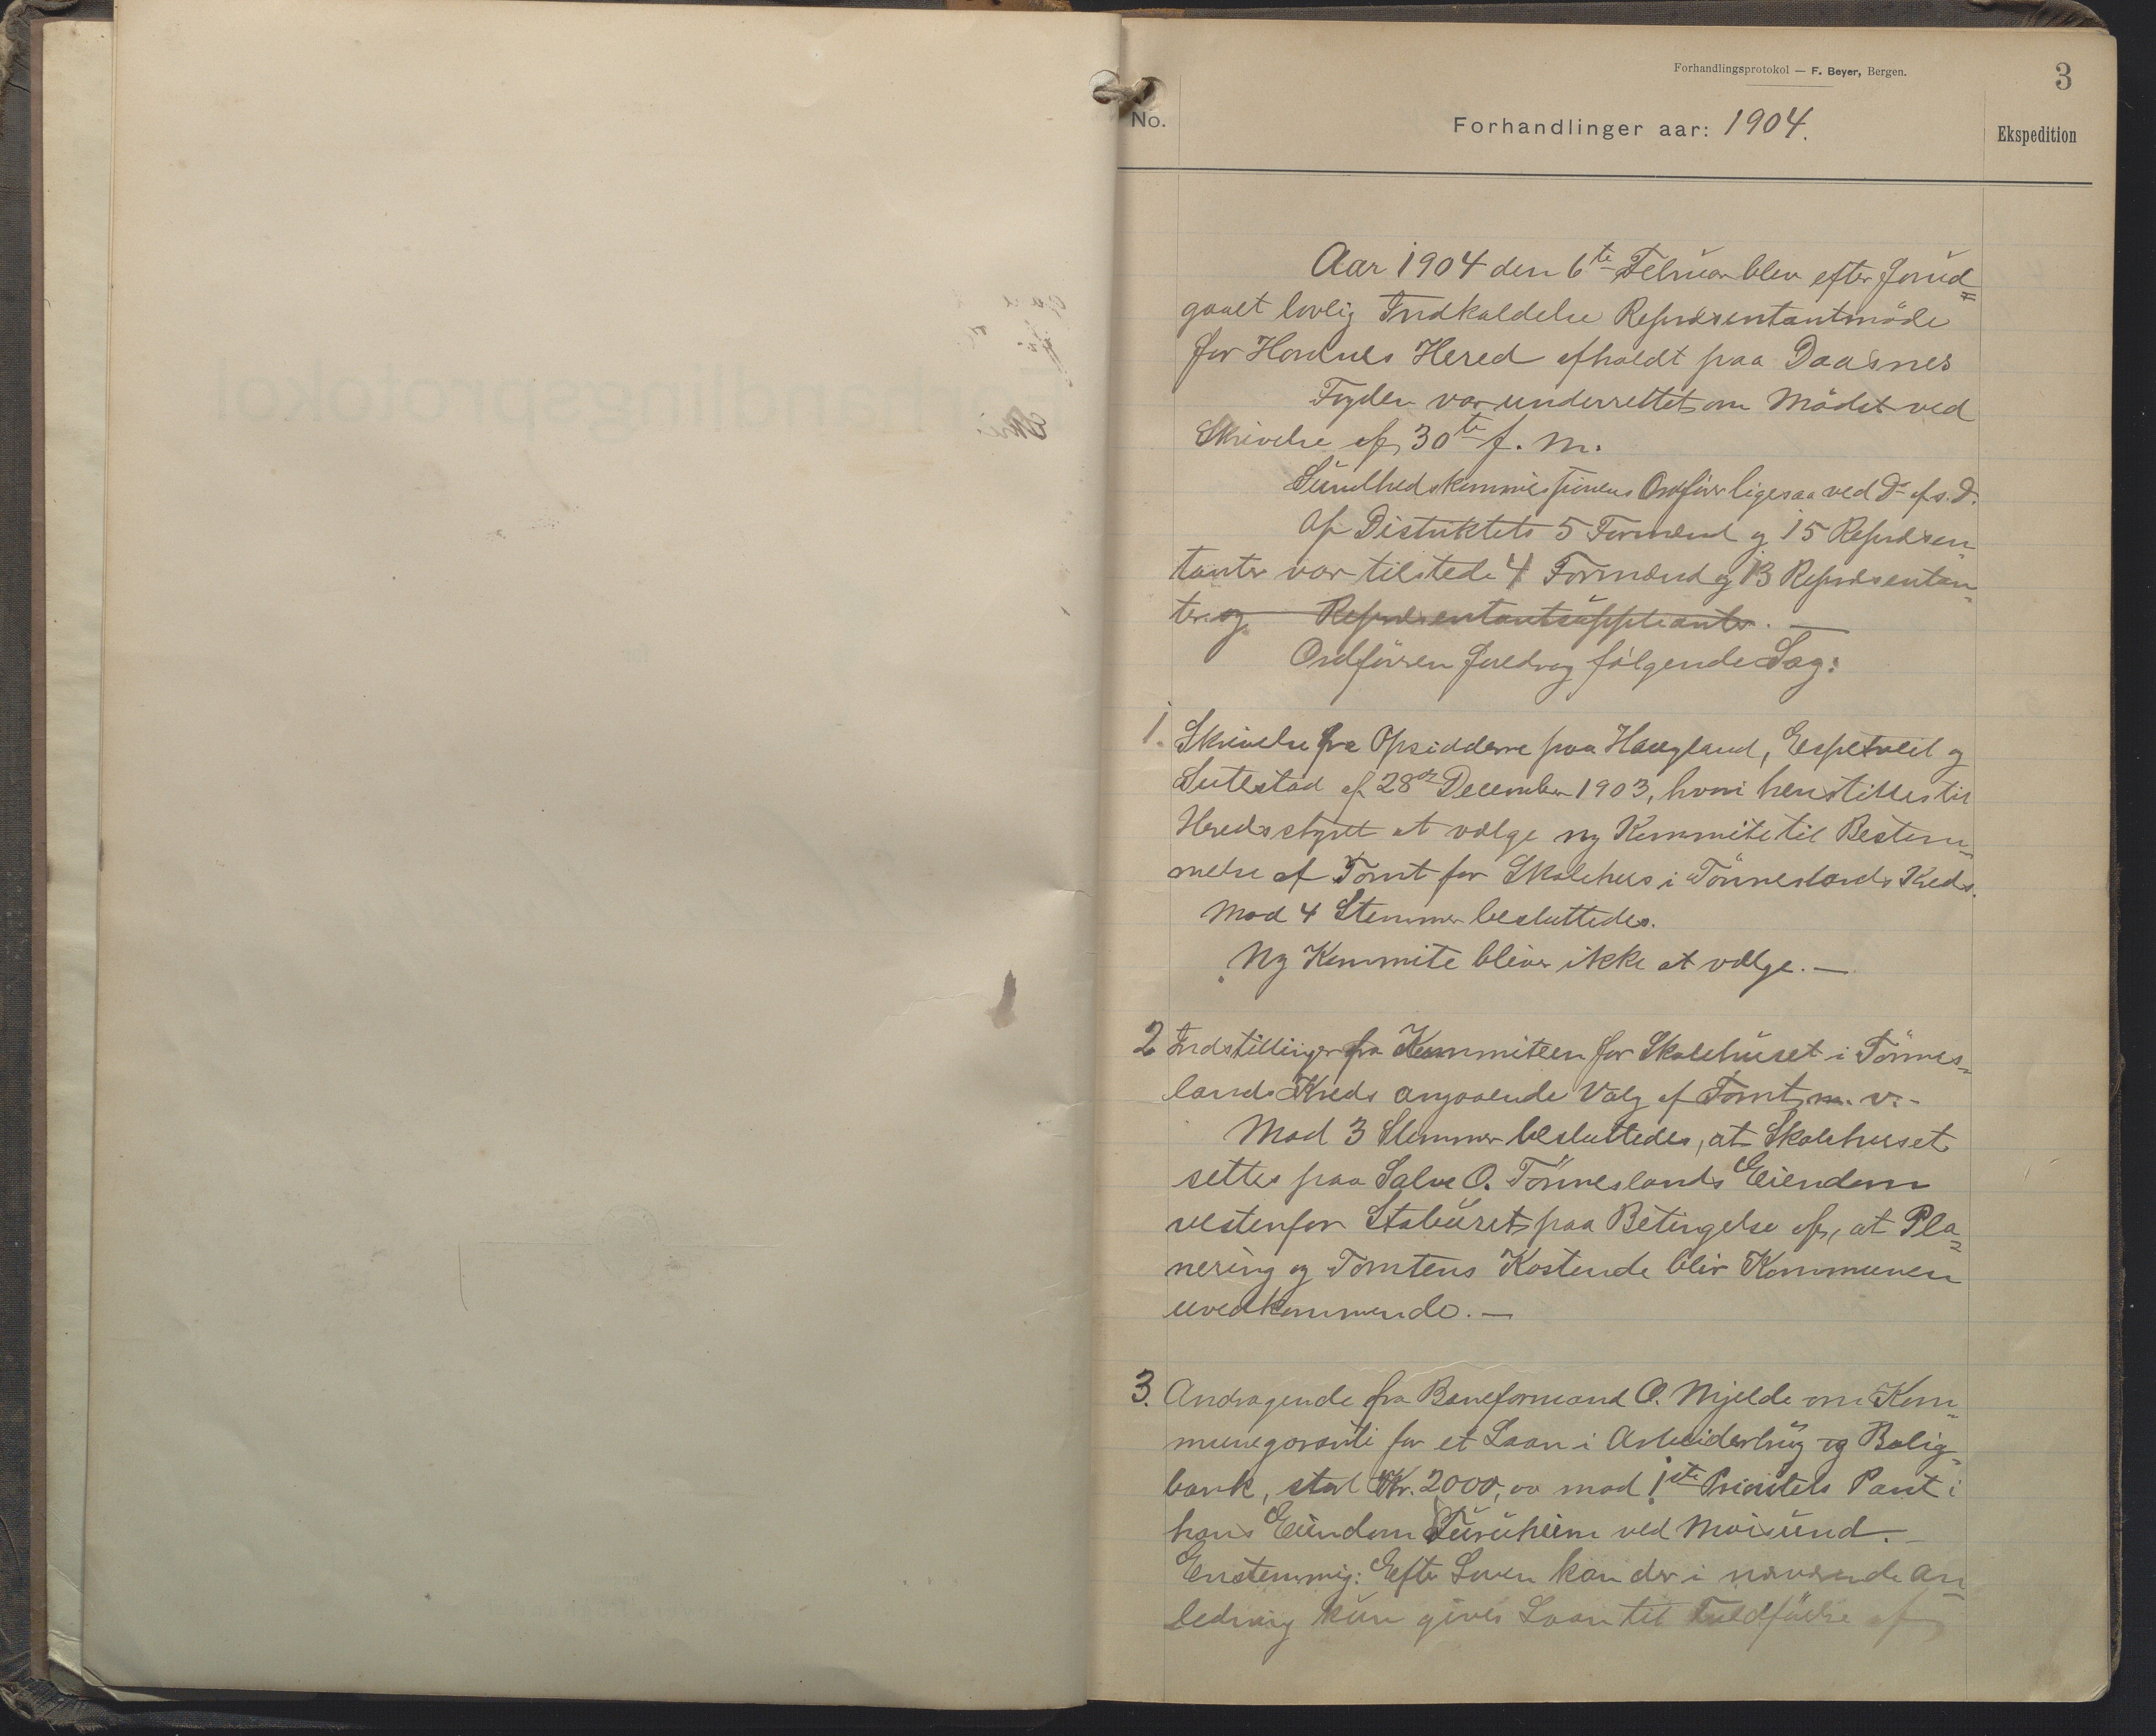 Forhandlingsprotokol — F. Beyer, Bergen.
3
No.
Forhandlinger aar: 1904.
Ekspedition
Aar 1904 den 6te Februar blev efter forud=
gaaet lovlig Indkaldelse Repræsentantmöde
for Hornnes Hered afholdt paa Daasnes
Fogden var underrettet om Mödet ved
Skrivelse af 30te f. M.
Sundhedskommissionens Ordförer ligesaa ved Do af s. D.
Af Distriktets 5 Formænd og 15 Repræsen-
tanter var tilstede 4 Formænd og 13 Repræsentan-
ter og Repræsentantsuppleanter. —
Ordföreren foredrog fölgende Sag:
1. Skrivelse fra Opsidderne paa Haugland, Espetveit og
Sutestad af 28de December 1903, hvori henstilles til
Heredsstyret at vælge ny Kommite til Bestem-
melse af Tomt for Skolehus i Tönneslands Kreds.
Mod 4 Stemmer besluttedes.
Ny Kommite bliver ikke at vælge. —
2 Indstillinger fra Kommiteen for Skolehuset i Tönnes-
lands Kreds angaaende Valg af Tomt m. v. -
Mod 3 Stemmer besluttedes, at Skolehuset
settes paa Salve O. Tönneslands Eiendom
vestenfor Stabüret paa Betingelse af, at Pla-
nering og Tomtens Kostende blir Kommunen
uvedkommende. —
3. Andragende fra Baneformand O. Mjelde om Kom-
munegaranti for et Laan i Arbeiderbrug og Bolig-
bank, stort Kr. 2000,00 mod 1ste Prioritets Pant i
hans Eiendom Furuheim ved Moisund. -
Enstemmig: Efter Loven kan der i nærværende An-
ledning kun gives Laan til Fuldförelse af